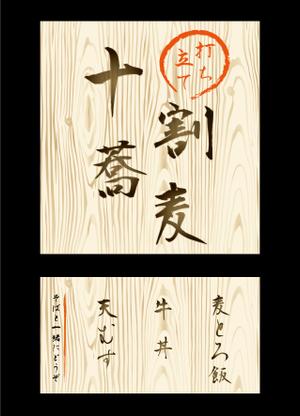 打ち
立て
十割
蕎麦
麦とろ飯
牛丼
天むす
そばと一緒にどうぞ